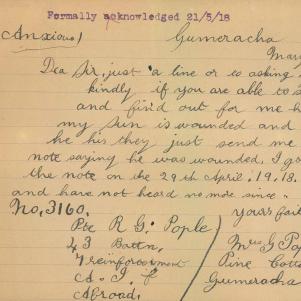 Formally acknowledged 21/5/18
(Anxious) Gumeracha
May
Dea Sir, just a line or to asking
kindly if you are able to
and find out for me
my sun is wounded and
he his they just send me
note saying he was wounded, I go
the note on the 29th April. 19.18
and have not heard no more since.
No, 3160. yours fai
Pte R G. Pople
43 Battn, Mrs G Po
7 reinforcement Pine Cotta
A. I. F Gumeracha
Abroad,